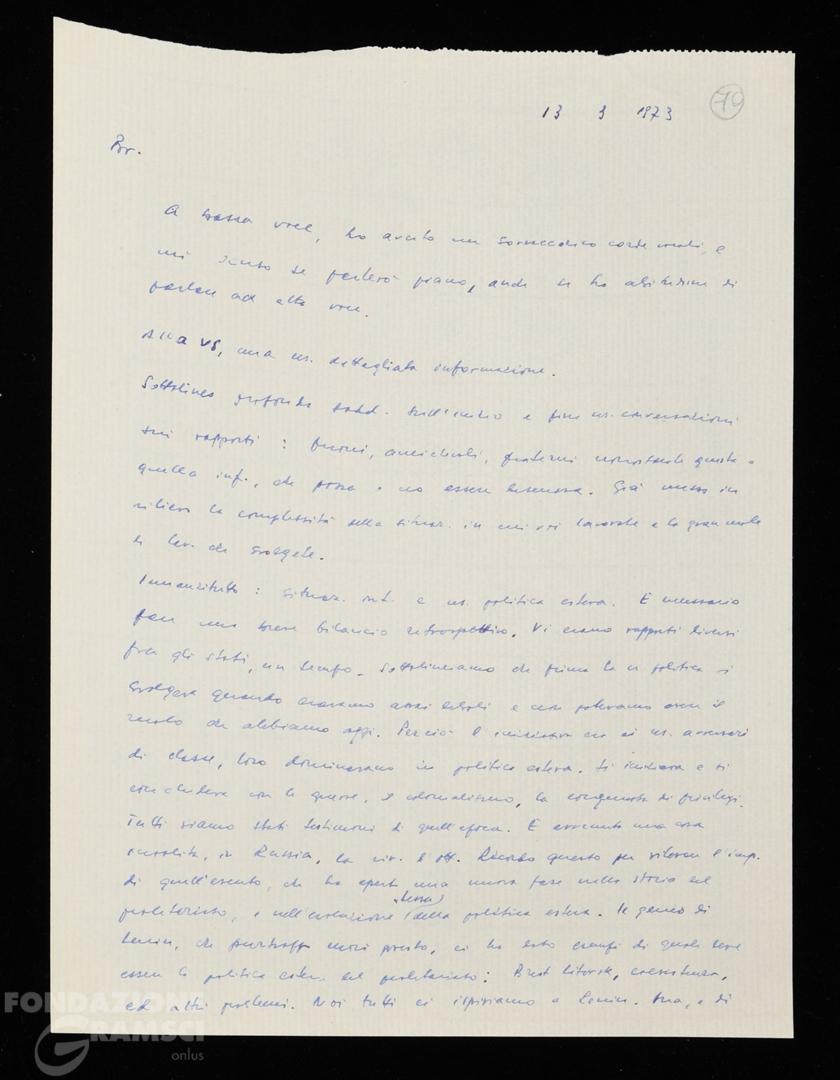 13 3 1973
70
Br.
A bassa voce, ho avuto un
mi scuso se parlerò piano, anche se ho abitudine di
parlare ad alta voce.
Alla vs, una ns. dettagliata informazione.
Sottolineo profonda sodd. sull'inizio e fine ns. conversazioni
sui rapporti : buoni, amichevoli, fraterni nonostante questa o
quella inf., che possa o no essere successa. Già messo in
rilievo la complessità della situaz. in cui voi lavorate e la gran mole
di lav. che svolgete.
Innanzitutto : situaz. int. e ns. politica estera. È necessario
fare una breve bilancio retrospettivo. Vi erano rapporti diversi
fra gli stati, un tempo. Sottolineiamo che prima la ns politica si
svolgeva quando eravamo assai deboli e non potevamo avere il
ruolo che abbiamo oggi. Perciò l'iniziativa era ai ns. avversari
di classe, loro dominavano in politica estera. Si iniziava e si
concludeva con le guerre, il colonialismo, la conquista di privilegi.
Tutti siamo stati testimoni di quell'epoca. È avvenuta una cosa
insolita, in Russia, la riv. d'ott. Ricordo questo per rilevare l'imp.
di quell'evento, che ha aperto una nuova fase nella storia del
proletariato, e nell'evoluzione (stessa) della politica estera. Il genio di
Lenin, che purtroppo morì presto, ci ha dato esempi di quale deve
essere la politica estera del proletariato: Brest Litovsk, coesistenza,
ed altri problemi. Noi tutti ci ispiriamo a Lenin. Ma, e di
FONDAZIONE
GRAMSCI
onlus